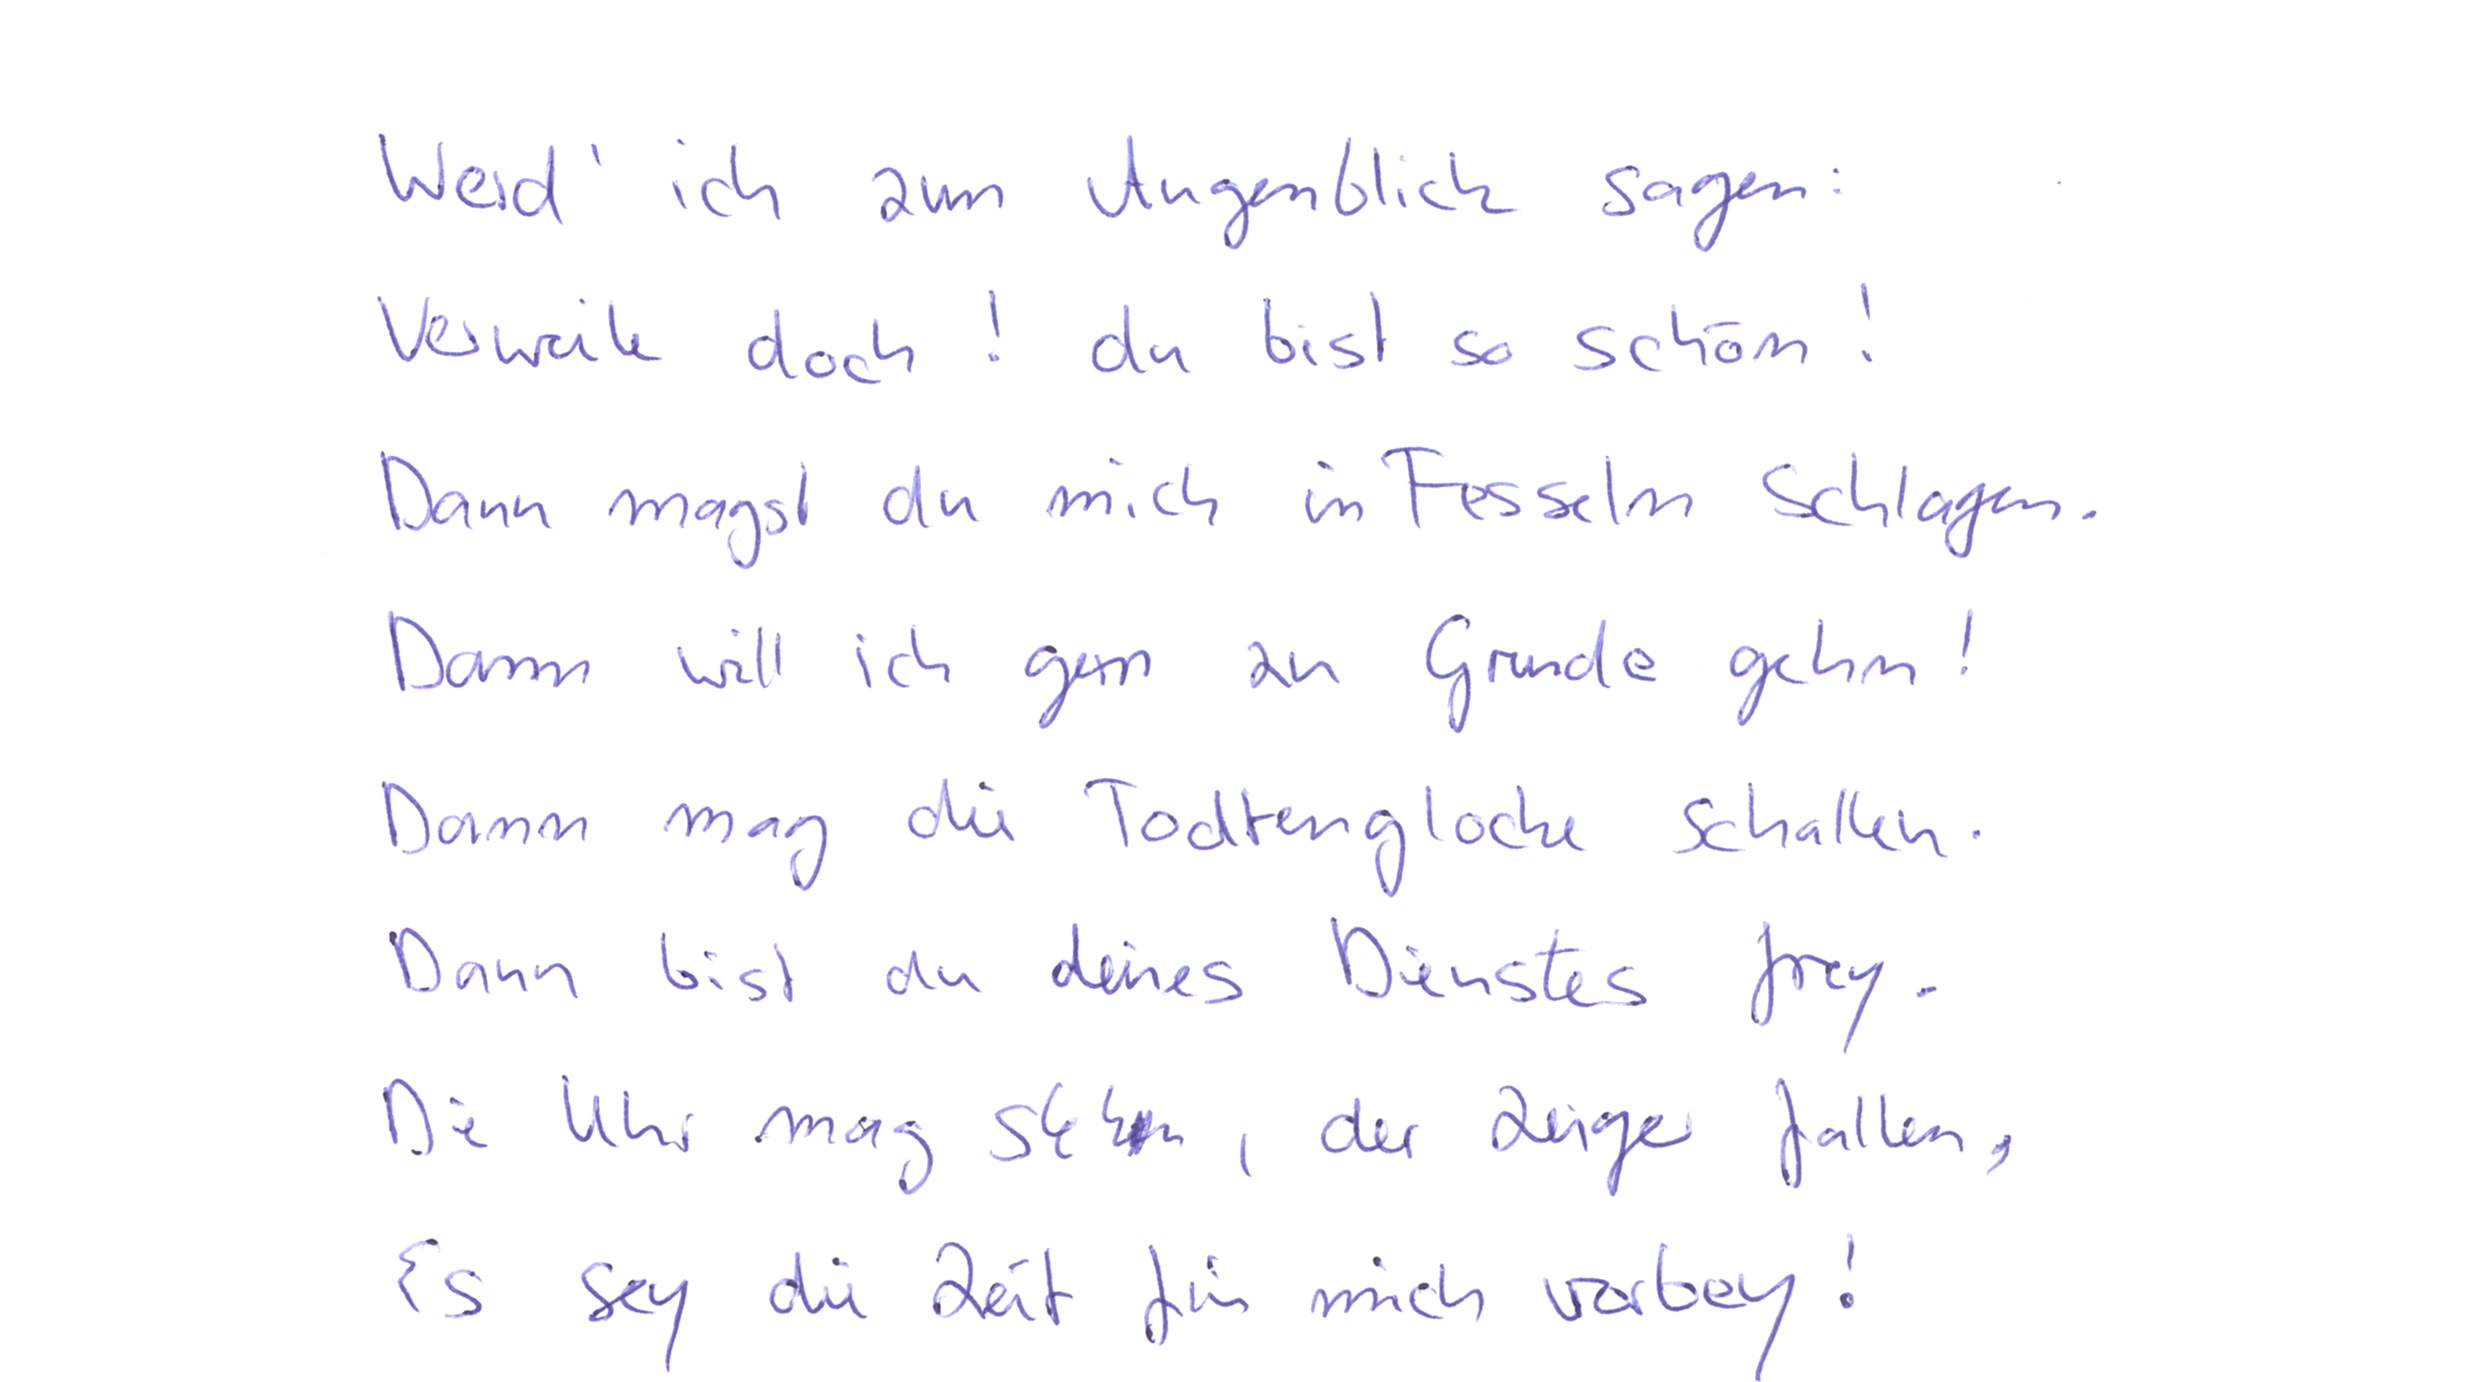 Werd' ich zum Augenblick sagen:
Verweile doch! du bist so schön!
Dann magst du mich in Fesseln schlagen.
Dann will ich gern zu Grunde gehn!
Dann mag die Todtenglocke schallen.
Dann bist du deines Dienstes frey.
Die Uhr mag stehn, der Zeiger fallen,
Es sey die Zeit für mich vorbey!